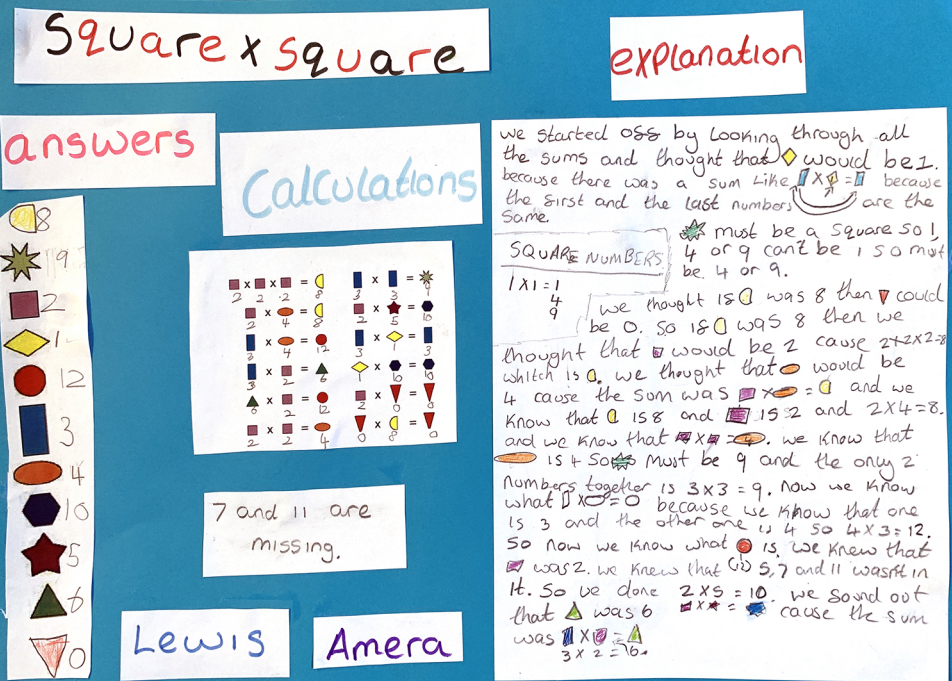 Square x square
explanation
answers
Calculations
8
9
2
1
12
3
4
10
5
6
0
x x =
2 2 2 8
x =
2 4 8
x =
3 4 12
x =
3 2 6
x =
6 2 12
x =
2 2 4
x =
3 3 9
x =
2 5 10
x =
3 1 3
x =
1 10 10
x =
2 0 0
x =
0 8 0
7 and 11 are
missing.
Lewis
Amera
we started oss by looking through all
the sums and thought that would be 1.
because there was a sum like x = because
the first and the last numbers are the
same.
must be a square so 1,
4 or 9 can't be 1 so must
be 4 or 9.
SQUARE NUMBERS
1x1=1
4
9
we thought is was 8 then could
be 0. so is was 8 then we
thought that would be 2 cause 2+2x2=8
whitch is . we thought that would be
4 cause the sum was x = and we
know that is 8 and is 2 and 2x4=8.
and we know that x = . we know that
is 4 so must be 9 and the only 2
numbers together is 3x3=9. now we know
what x = because we know that one
is 3 and the other one is 4 so 4x3=12.
So now we know what is. we knew that
was 2. we knew that 5, 7 and 11 wasn't in
it. So we done 2x5=10. we sound out
that was 6 x = cause the sum
was x =
3 x 2 = 6.